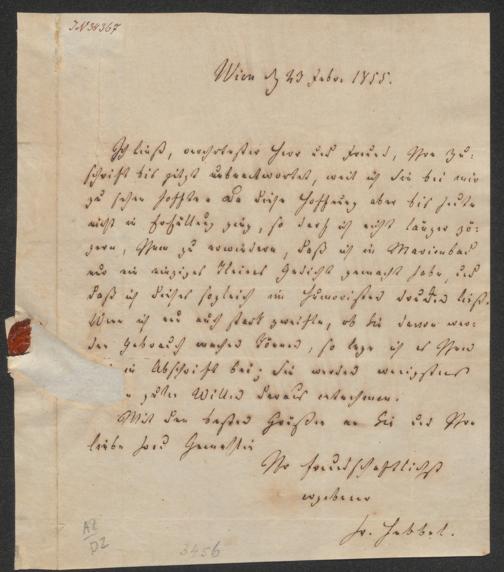 JN 34367
Wien d 23 Febr. 1855.
Ich ließ, verehrtester Herr und Freund, Ihre Zu-
schrift bis jetzt unbeantwortet, weil ich Sie bei mir
zu sehen hoffte. Da diese Hoffnung aber bis heute
nicht in Erfüllung ging, so darf ich nicht länger zö-
gern, Ihnen zu erwiedern, daß ich in Marienbad
nur ein einziges kleines Gedicht gemacht habe, und
daß ich dieses sogleich im Humoristen drucken ließ.
Wenn ich nun auch stark zweifle, ob Sie davon wer-
den Gebrauch machen können, so lege ich es Ihnen
in Abschrift bei; Sie werden wenigstens
guten Willen daraus entnehmen.
Mit den besten Grüßen an Sie und Ihre
liebe Frau Gemahlin
Ihr freundschaftlichst
ergebener
Fr. Hebbel.
A2
D2
3456